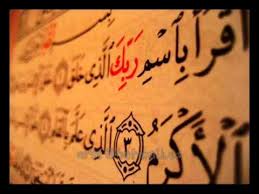 ٱقۡرَأۡ بِٱسۡمِ رَبِّكَ ٱلَّذِي خَلَقَ
ٱلۡأَكۡرَمُ ٣ ٱلَّذِي عَلَّمَ